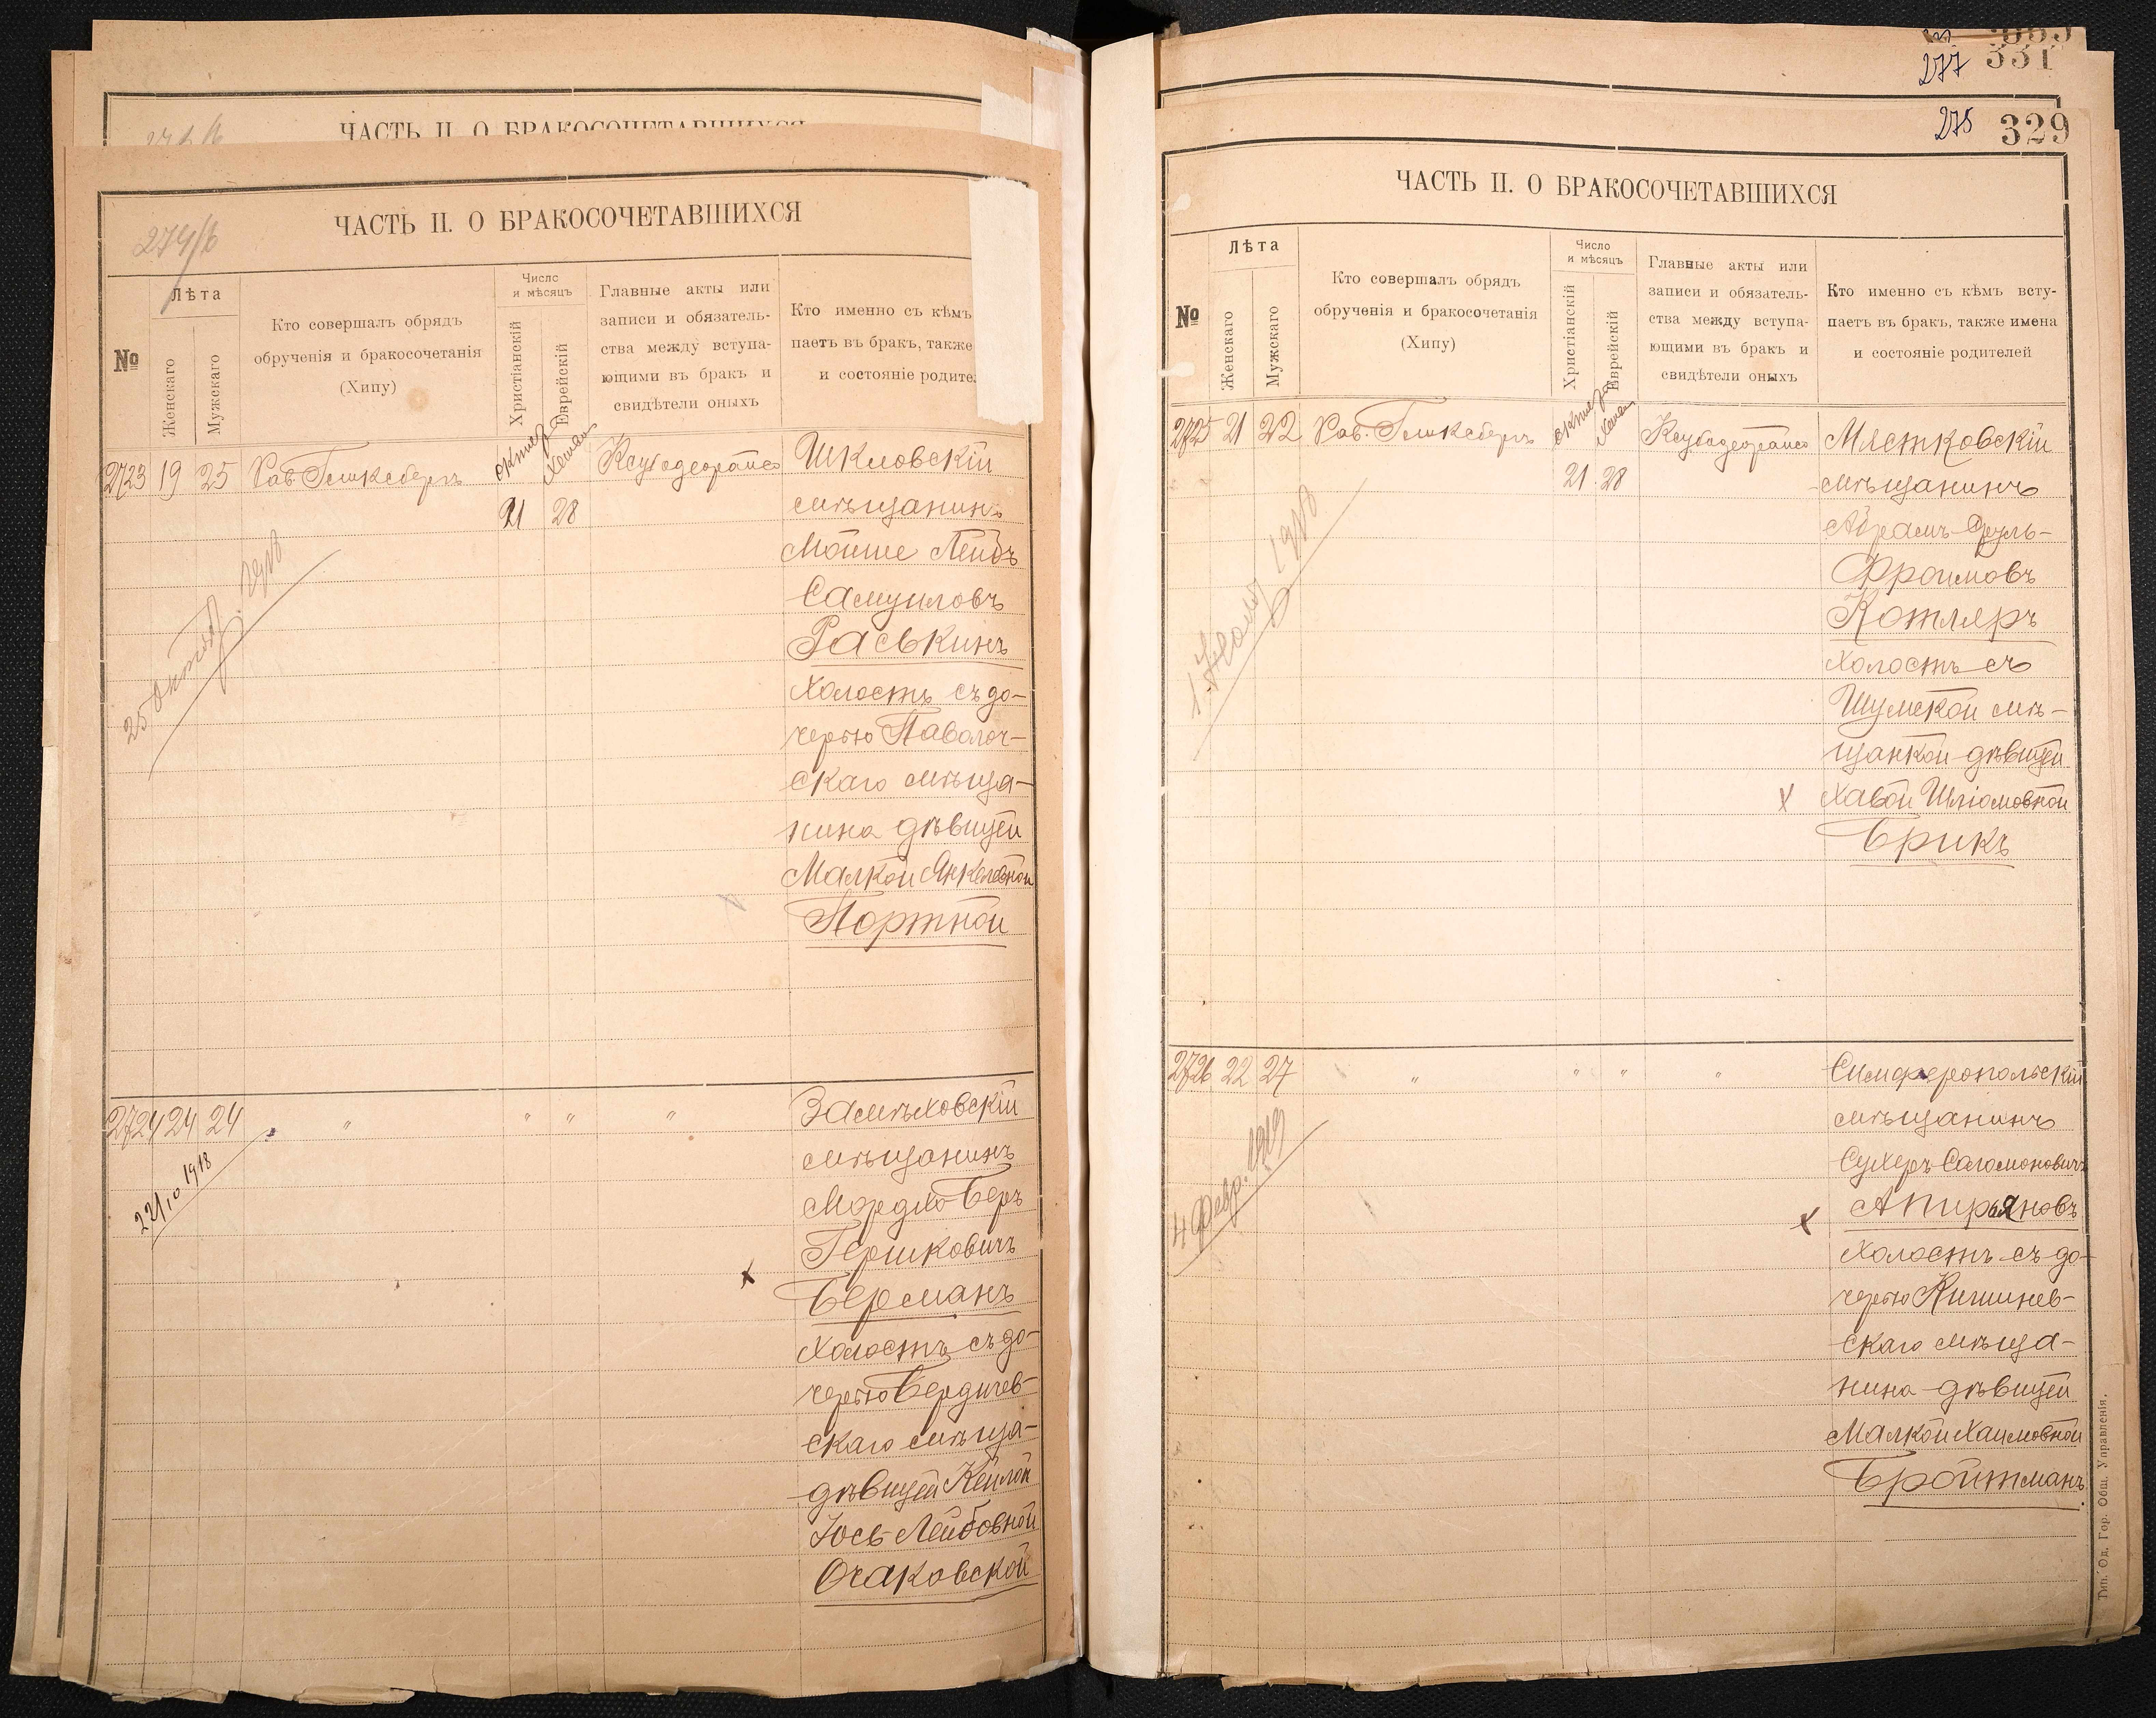 ЧАСТЬ II. О БРАКОСОЧЕТАВШИХСЯ
274/б
ЧАСТЬ II. О БРАКОСОЧЕТАВШИХСЯ
№
Лѣта
Женскаго
Мужскаго
Кто совершалъ обрядъ
обрученія и бракосочетанія
(Хипу)
Число
и мѣсяцъ
Христіанскій
Еврейскій
Главные акты или
записи и обязатель-
ства между вступа-
ющими въ бракъ и
свидѣтели оныхъ
Кто именно съ кѣмъ
паетъ въ бракъ, также
и состояніе родите
2723 19 25 Рав. Гликсбергъ
21 28
Шкловскій
мѣщанинъ
Мойше Лейбъ
Самуиловъ
Раськинъ
холостъ съ до-
черью Паволоч-
скаго мѣща-
нина дѣвицей
Малкой Янкелевной
Портной
25 октяб. 1918
2724 24 24 " " " "
22/10 1918
Замѣховскій
мѣщанинъ
Мордко Беръ
Гершковичъ
х Берманъ
холостъ съ до-
черью Бердичев-
скаго мѣща-
дѣвицей Кейлой
Іось-Лейбовной
Очаковской
277 331
275 329
ЧАСТЬ II. О БРАКОСОЧЕТАВШИХСЯ
№
Лѣта
Женскаго
Мужскаго
Кто совершалъ обрядъ
обрученія и бракосочетанія
(Хипу)
Число
и мѣсяцъ
Христіанскій
Еврейскій
Главные акты или
записи и обязатель-
ства между вступа-
ющими въ бракъ и
свидѣтели оныхъ
Кто именно съ кѣмъ всту-
паетъ въ бракъ, также имена
и состояніе родителей
2725 21 22 Рав. Гликсбергъ
21 28
Мястковскій
мѣщанинъ
Абрамъ-Сруль-
Фроимовъ
Котляръ
холостъ съ
Шумской мѣ-
щанкой дѣвицей
х Хавой Шліомовной
Брикъ
1918
2726 22 27 " " " "
4 Февр. 1919
Симферопольскій
мѣщанинъ
Сухеръ Саломоновичъ
х Апирьяновъ
холостъ съ до-
черью Кишинев-
скаго мѣща-
нина дѣвицей
Малкой Хаимовной
Бройтманъ.
Тип. Од. Гор. Общ. Управленія.